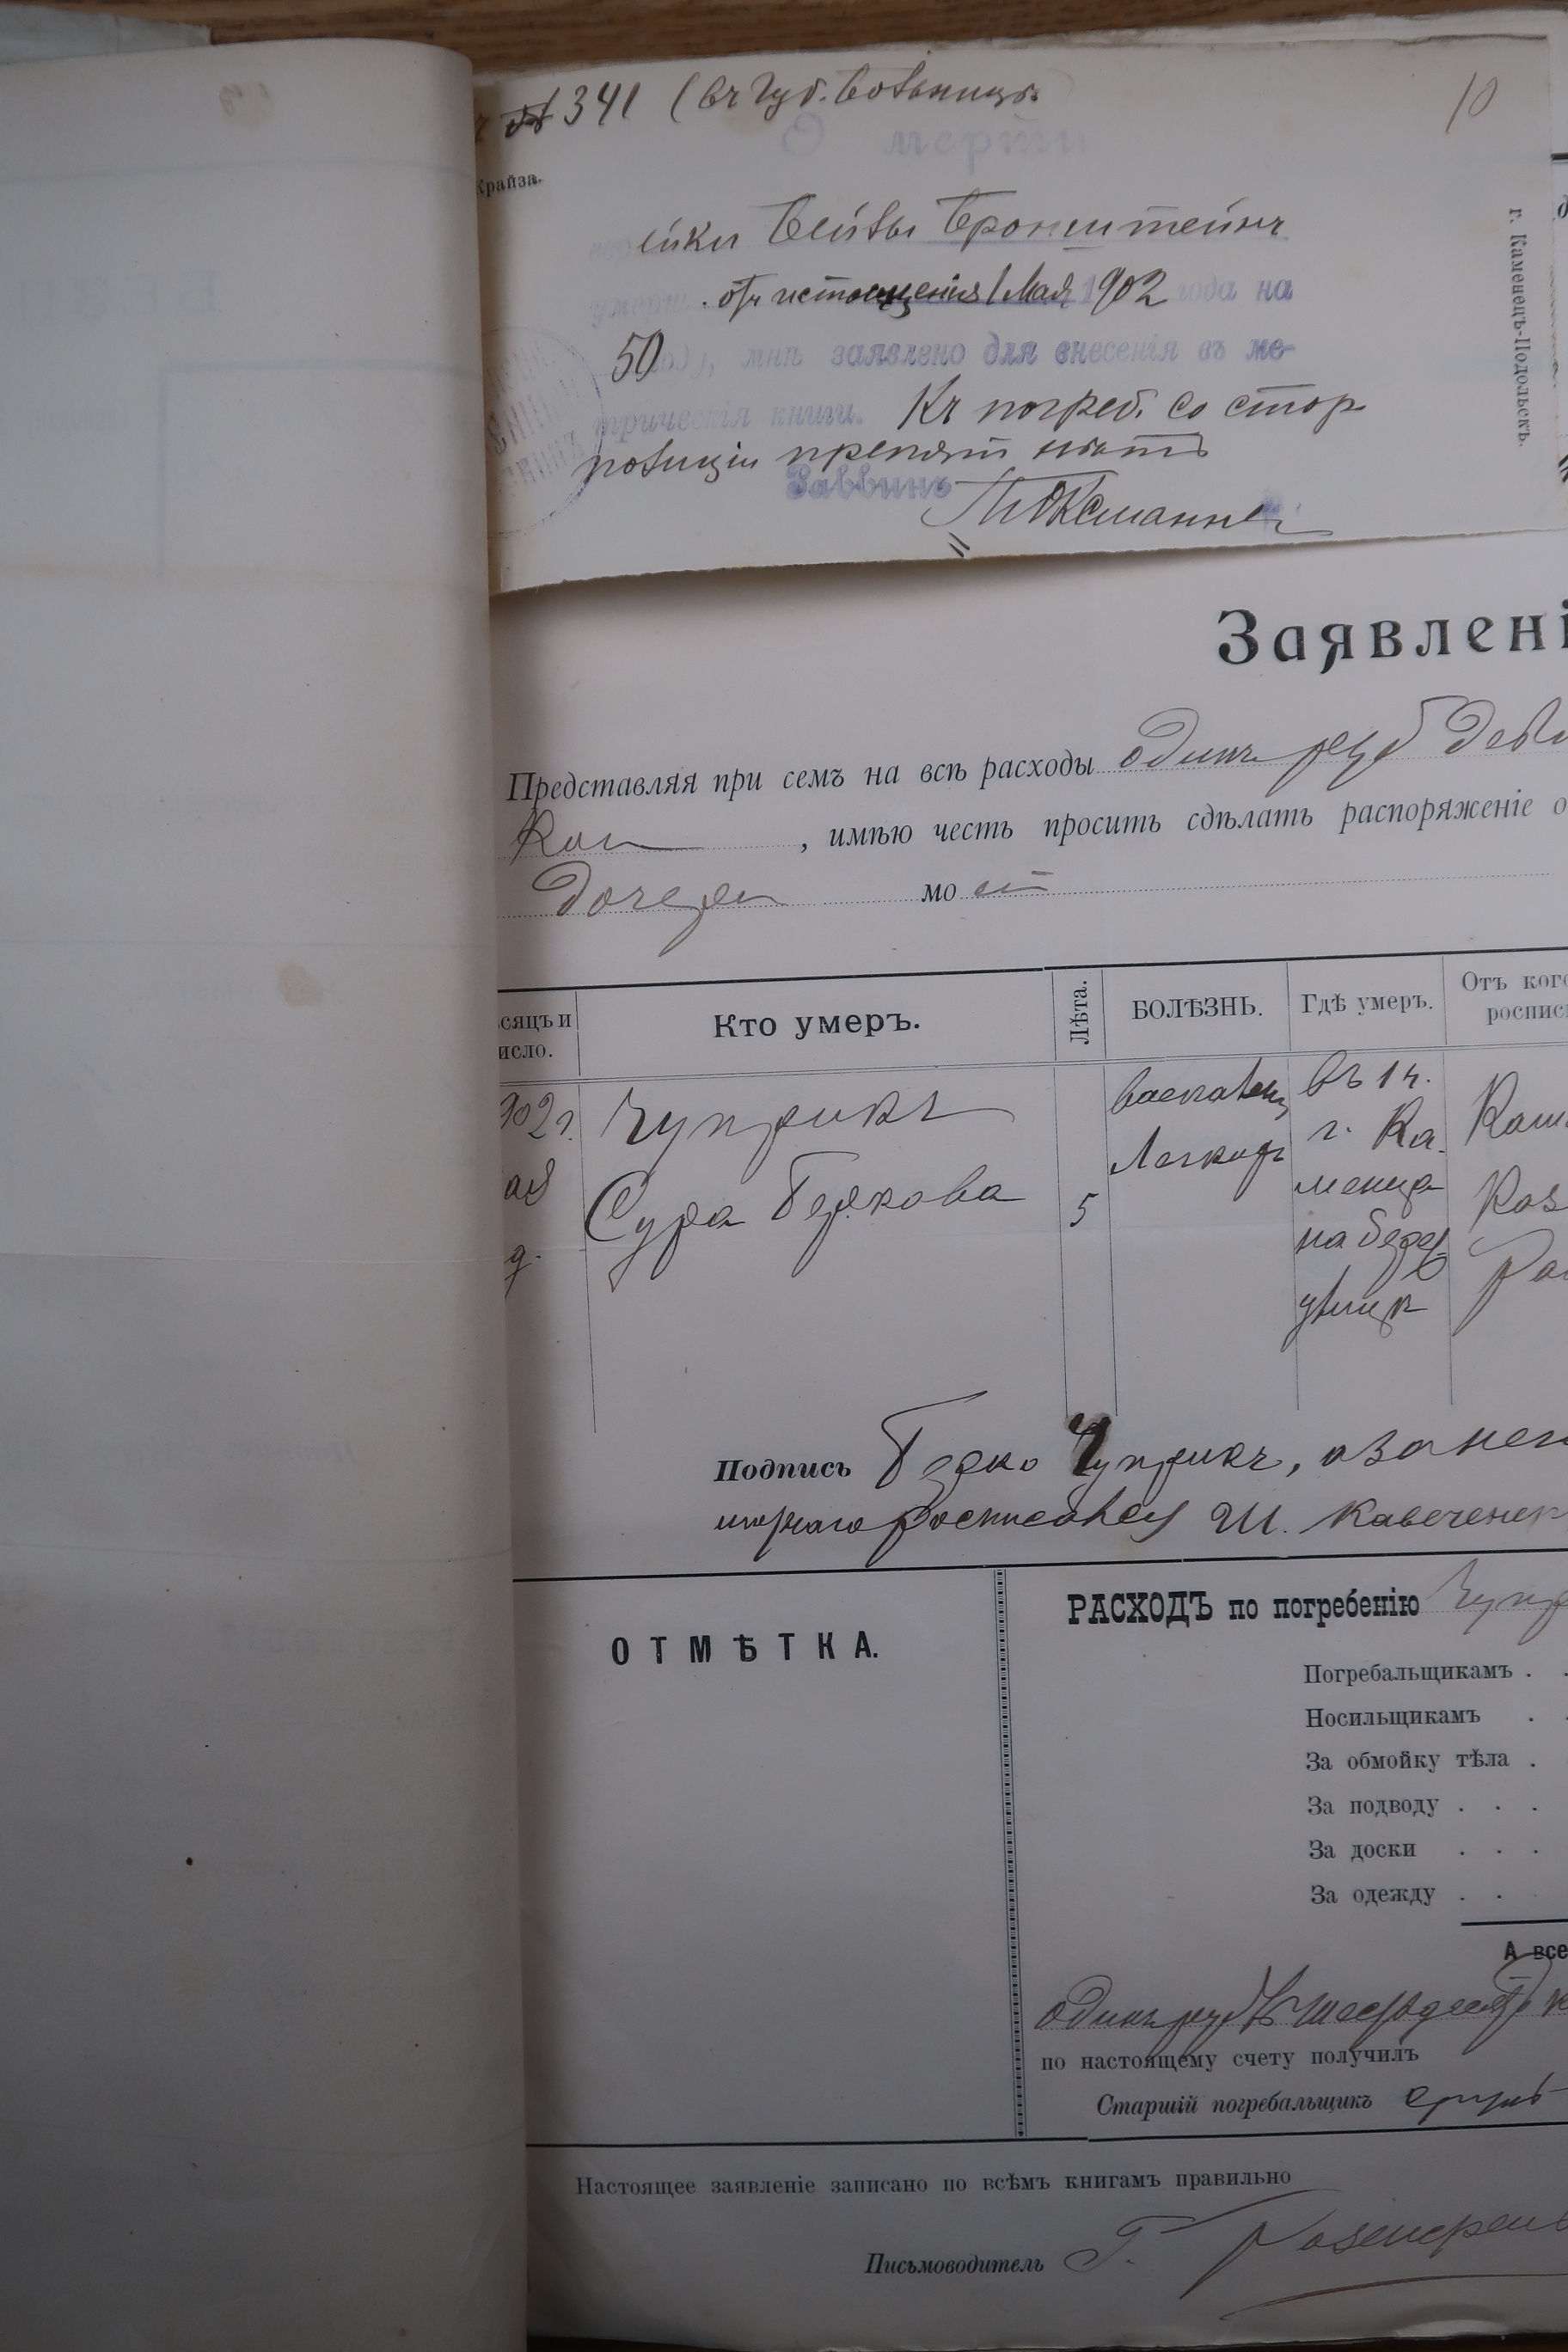 № 341 (въ Губ. больницѣ
10
О мерти
Крайза.
г. Каменецъ-Подольскъ.
Бейлы Бронштейнъ
отъ истощенія 1 Мая 1902 года на
50 году, мнѣ заявлено для внесенія въ ме-
трическія книги. Къ погреб. со стор
полиціи препят нѣтъ
Раввинъ
Заявлені
Представляя при семъ на всѣ расходы одинъ руб девя
Коп , имѣю честь просить сдѣлать распоряженіе о
Дочери моей
сяцъ и исло. Кто умеръ. Лѣта. БОЛѢЗНЬ. Гдѣ умеръ. Отъ кого роспис
902 г. Чуприкъ воспаленіе въ 1 ч.
ая Сура Беркова 5 Легкихъ г. Ка-
д. менца
на берег
улицѣ
Подпись Берко Чуприкъ, а за него
ОТМѢТКА.
РАСХОДЪ по погребенію Чупр
Погребальщикамъ . .
Носильщикамъ .
За обмойку тѣла .
За подводу . . .
За доски . . .
За одежду . .
А все
одинъ руб шестьдесят к
по настоящему счету получилъ
Старшій погребальщикъ
Настоящее заявленіе записано по всѣмъ книгамъ правильно
Письмоводитель Г.